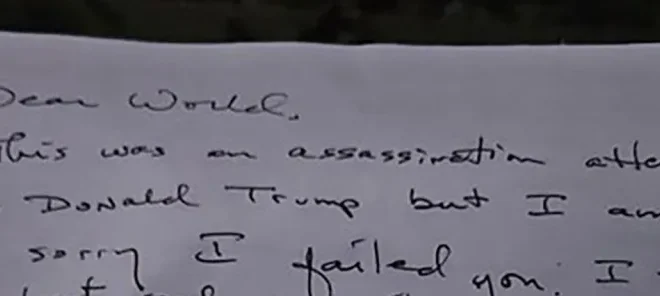 Dear World,
This was an assassination atte
Donald Trump but I am
sorry I failed you. I